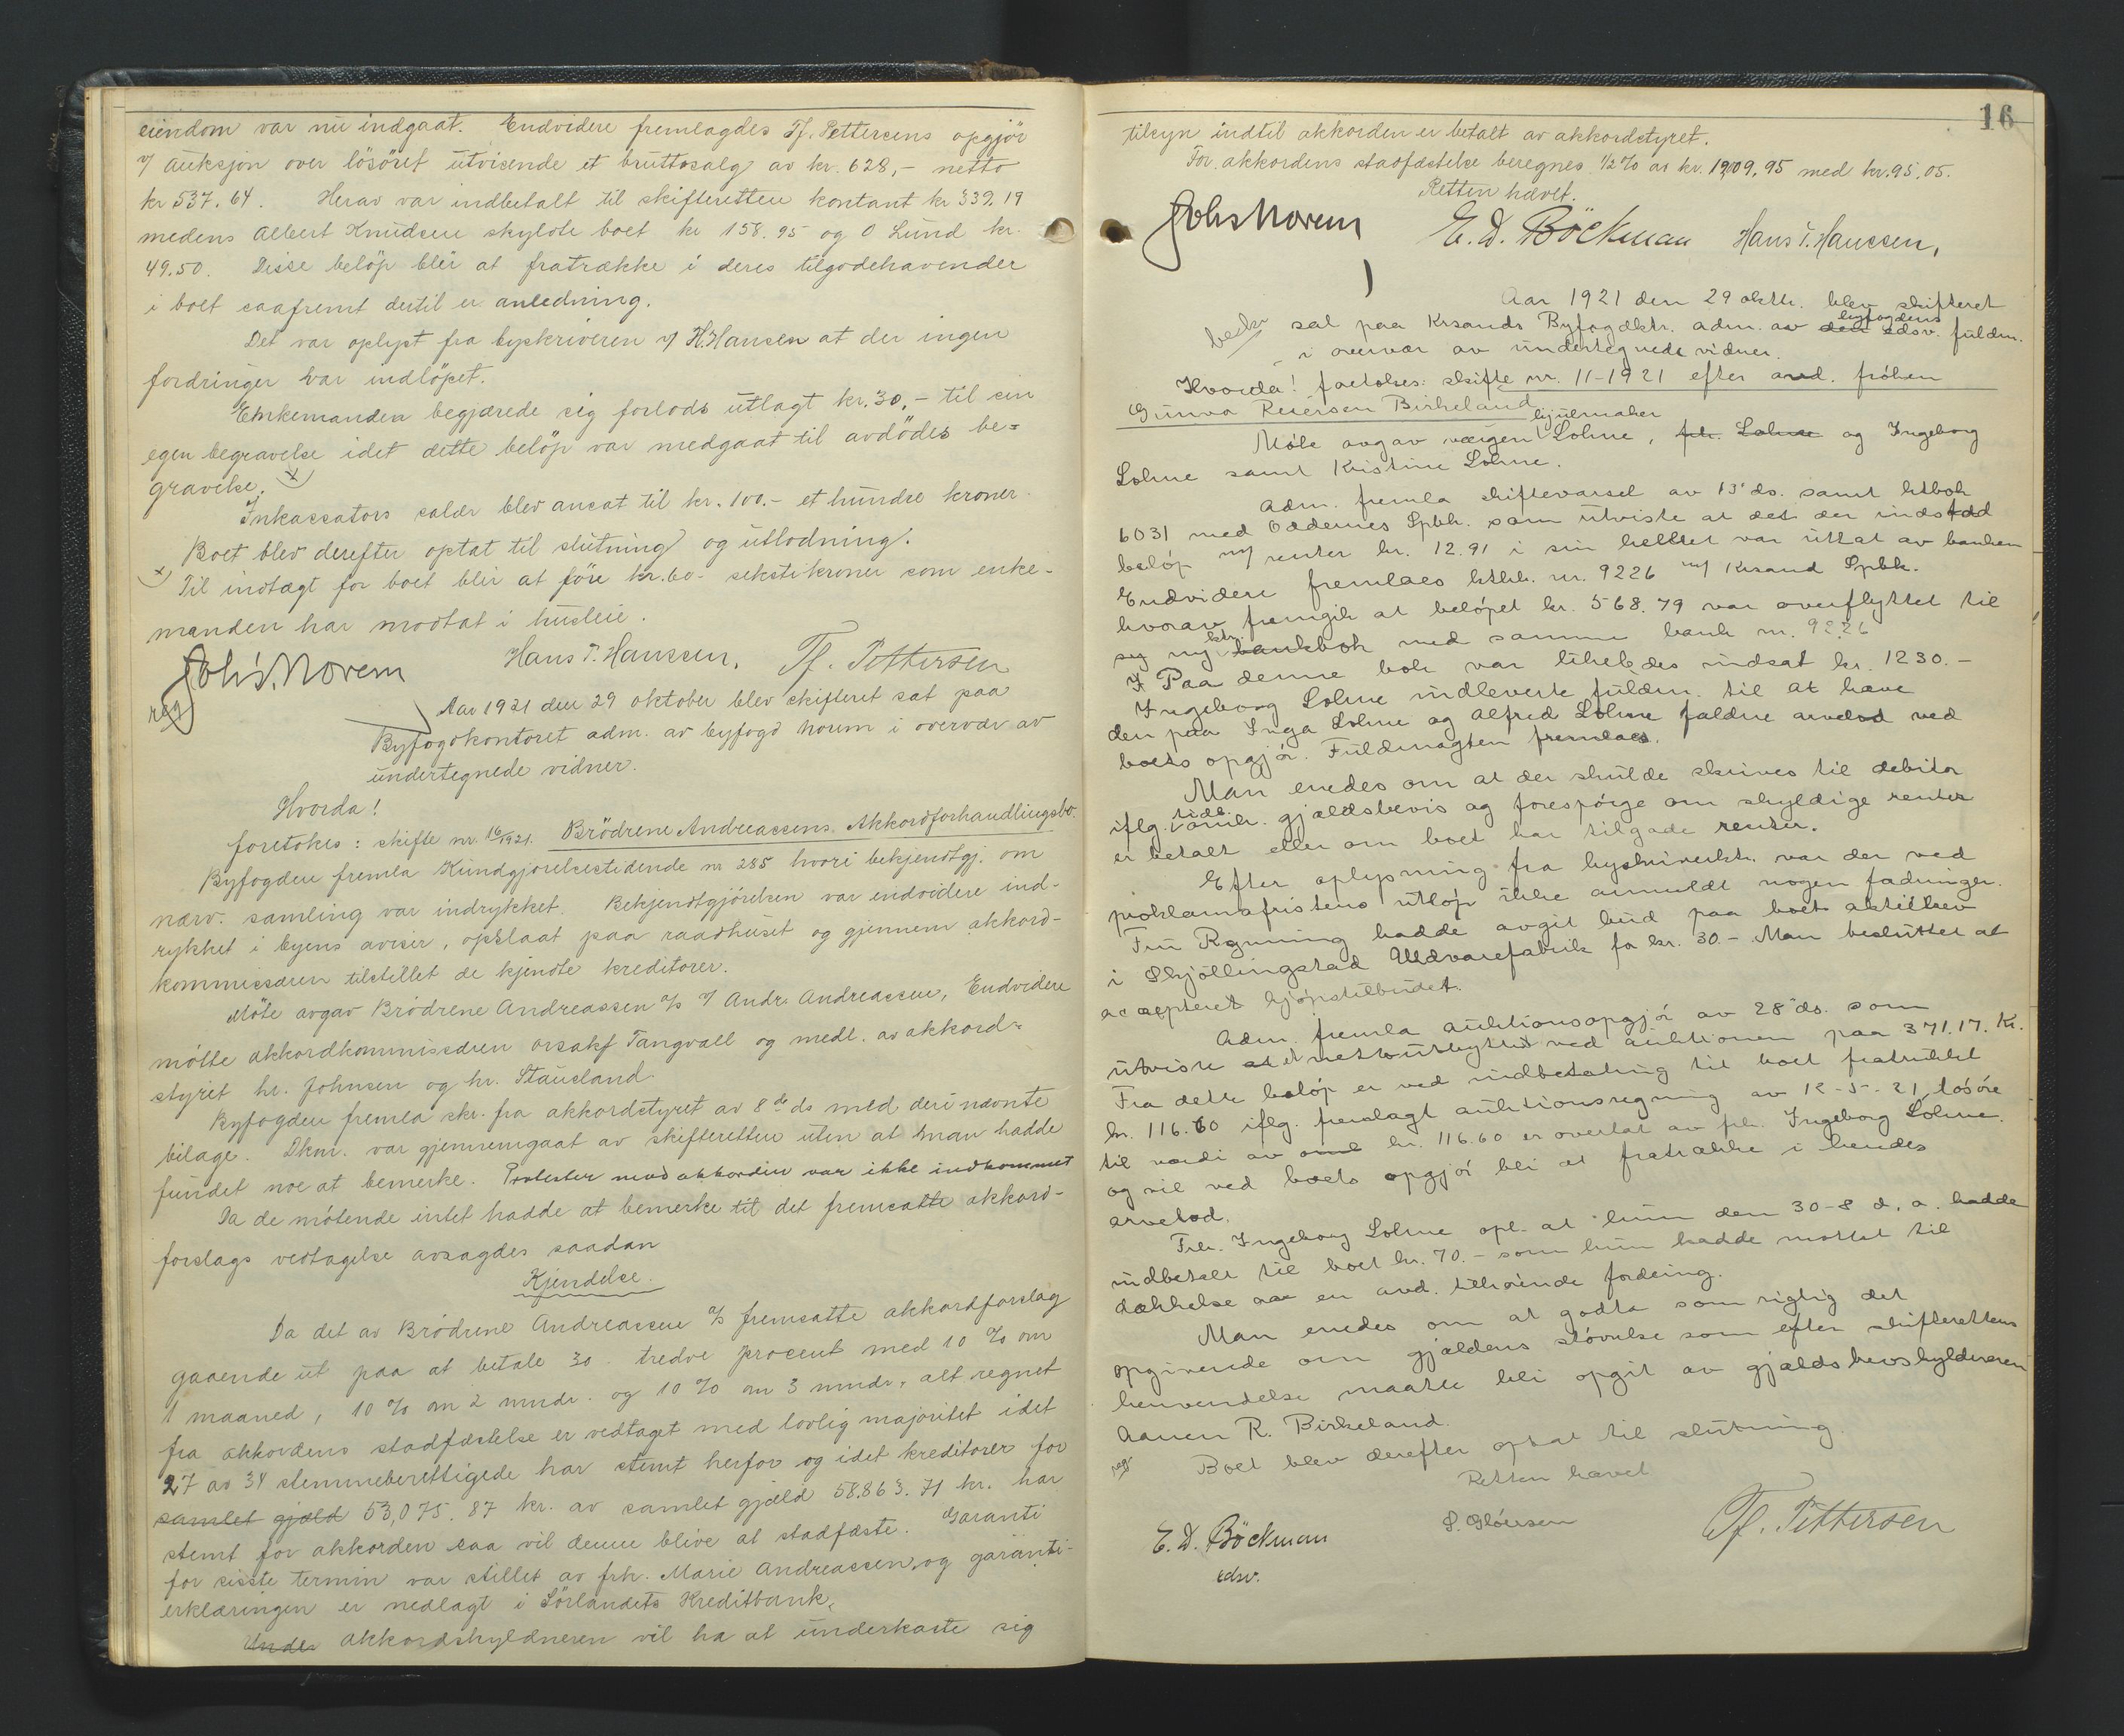 eiendom var nu indgaat. Endvidere fremlagdes Tf. Pettersens opgjör
v/ auksjon over lösöret utvisende et bruttosalg av kr. 628,- netto
kr 537.64. Herav var indbetalt til skifteretten kontant kr 339.19
medens Albert Knudsen skyldte boet kr 158.95 og O Lund kr.
49.50. Disse belöp blir at fratrække i deres tilgodehavender
i boet saafremt dertil er anledning.
Det var oplyst fra byskriveren v/ H. Hansen at der ingen
fordringer var indlöpet.
Enkemanden begjærede sig forlods utlagt kr. 30,- til sin
egen begravelse idet dette belöp var medgaat til avdödes be=
gravelse. x)
Inkassators salær blev ansat til kr. 100.- et hundre kroner.
Boet blev derefter optat til slutning og utlodning.
x) Til indtægt for boet blir at före kr. 60- sekstikroner som enke-
manden har modtat i husleie.
Johs. Norem Hans T. Hanssen, Tf. Pettersen
reg
Aar 1921 den 29 oktober blev skifteret sat paa
Byfogdkontoret adm. av byfogd Norem i overvær av
undertegnede vidner.
Hvorda!
foretokes: skifte nr. 16/1921. Brödrene Andreassens Akkordforhandlingsbo.
Byfogden fremla Kundgjørelsestidende nr 285 hvori bekjendtgj. om
nærv. samling var indrykket. Bekjendtgjörelsen var endvidere ind-
rykket i byens aviser, opslaat paa raadhuset og gjennem akkord-
kommissæren tilstillet de kjendte kreditorer.
Möte avgav Brödrene Andreassen A/S v/ Andr. Andreassen, Endvidere
mötte akkordkommissæren orsakf Tangvall og medl. av akkord=
styret hr. Johnsen og hr. Stausland.
Byfogden fremla skr. fra akkordstyret av 8de ds med deri nævnte
bilage. Dkm. var gjennemgaat av skifteretten uten at man hadde
fundet noe at bemerke. Protester mod akkorden var ikke indkommet
Da de mötende intet hadde at bemerke til det fremsatte akkord-
forslags vedtagelse avsagdes saadan
Kjendelse.
Da det av Brödrene Andreassen A/S fremsatte akkordforslag
gaaende ut paa at betale 30. tredve procent med 10 % om
1 maaned, 10 % om 2 mndr. og 10 % om 3 mndr, alt regnet
fra akkordens stadfæstelse er vedtaget med lovlig majoritet idet
27 av 34 stemmeberettigede har stemt herfor og idet kreditorer for
samlet gjæld 53,075.87 kr. av samlet gjæld 58.863.71 kr. har
stemt for akkorden saa vil denne blive at stadfæste. Garanti
for sisste termin var stillet av frk. Marie Andreassen, og garanti-
erklæringen er nedlagt i Sörlandets Kreditbank.
Under akkordskyldneren vil ha at underkaste sig
16
tilsyn indtil akkorden er betalt av akkordstyret.
For akkordens stadfæstelse beregnes 1/2 % av kr. 19,009.95 med kr. 95.05.
Retten hævet.
Johs Norem E. D. Böckman Hans T. Hanssen,
Aar 1921 den 29 oktbr. blev skifteret
sat paa Krsands Byfogdktr. adm. av den byfogdens edsv. fuldm.
i overvær av undertegnede vidner.
Hvorda! foretokes: skifte nr. 11-1921 efter avd. frøken
Gunva Reiersen Birkeland
Møte avgav værgen hjulmaker Lohne, frk. Lohne og Ingeborg
Lohne samt Kristine Lohne.
Adm. fremla skiftevarsel av 13' ds. samt ktbok
6031 med Oddernes Spbk. som utviste at det der indstaad
beløp m/ renter kr. 12.91 i sin helhet var uttat av banken
Endvidere fremlaes ktbk. nr. 9226 m/ Krsand Spbk.
hvorav fremgik at beløpet kr. 568.79 var overflyttet til
sy ny ktr. bankbok med samme bank nr. 9226
Paa denne bok var likeledes indsat kr. 1230.-
Ingeborg Lohne indleverte fuldm. til at hæve
den paa Inga Lohne og Alfred Lohne faldne arvelod ved
boets opgjør. Fuldmagten fremlaes.
Man enedes om at der skulde skrives til debitor
iflg. tidl. omh. gjældsbevis og forespørge om skyldige renter
er betalt eller om boet har tilgode renter.
Efter oplysning fra byskriverktr. var der ved
proklamafristens utløp ikke anmeldt nogen fordringer.
Fru Rynning hadde avgit bud paa boets aktiebrev
i Skjöllingstad Uldvarefabrik for kr. 30.- Man besluttet at
acceptere kjöpstilbudet.
Adm. fremla auktionsopgjør av 28' ds. som
utviste et nettoutbytte ved auktionen paa 371.17. Kr.
Fra dette beløp er ved indbetaling til boet fratrukket
kr. 116.60 iflg. fremlagt auktionsregning av 12-5-21, løsøre
til værdi av omk kr. 116.60 er overtat av frk. Ingeborg Lohne.
og vil ved boets opgjør bli at fratrække i hendes
arvelod.
Frk. Ingeborg Lohne opl. at hun den 30-8 d. a. hadde
indbetalt til boet kr. 70.- som hun hadde mottat til
dækkelse av en avd. tilhørende fordring.
Man enedes om at godta som rigtig det
opgivende om gjældens størrelse som efter skifterettens
henvendelse maatte bli opgit av gjældsbevskyldneren
Aanen R. Birkeland.
reg. Boet blev derefter optat til slutning
Retten hævet
E. D. Böckman S. Glörsen Tf. Pettersen
edsv.